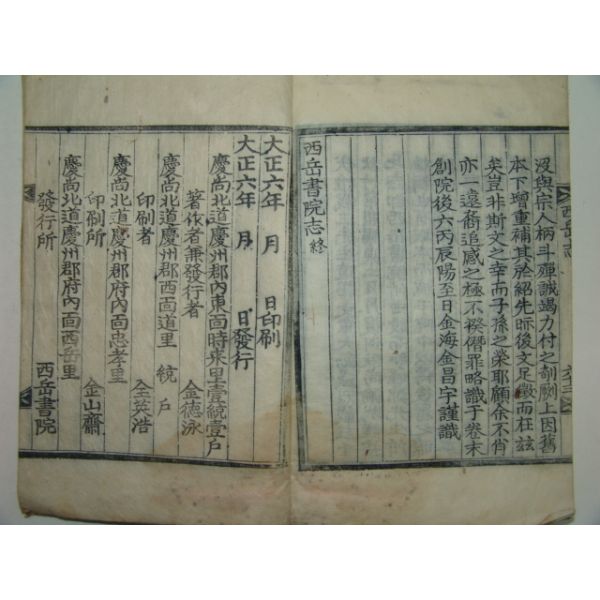 沒與宗人柄斗殫誠竭力付之剞劂上因舊
本下增重補其於紹先眎後文足徵而在玆
矣豈非斯文之幸而子孫之榮耶顧余不肖
亦一遠裔追感之極不揆僭罪略識于卷末
創院後六丙辰陽至日金海金昌宇謹識
西岳書院志 終
大正六年 月 日印刷
大正六年 月 日發行
慶尚北道慶州郡內東面時來里壹統壹戶
著作者兼發行者 金德泳
慶尚北道慶州郡西面道里 統 戶
印刷者 全英浩
慶尚北道慶州郡府內面忠孝里
印刷所 金山齋
慶尚北道慶州郡府內面西岳里
發行所 西岳書院